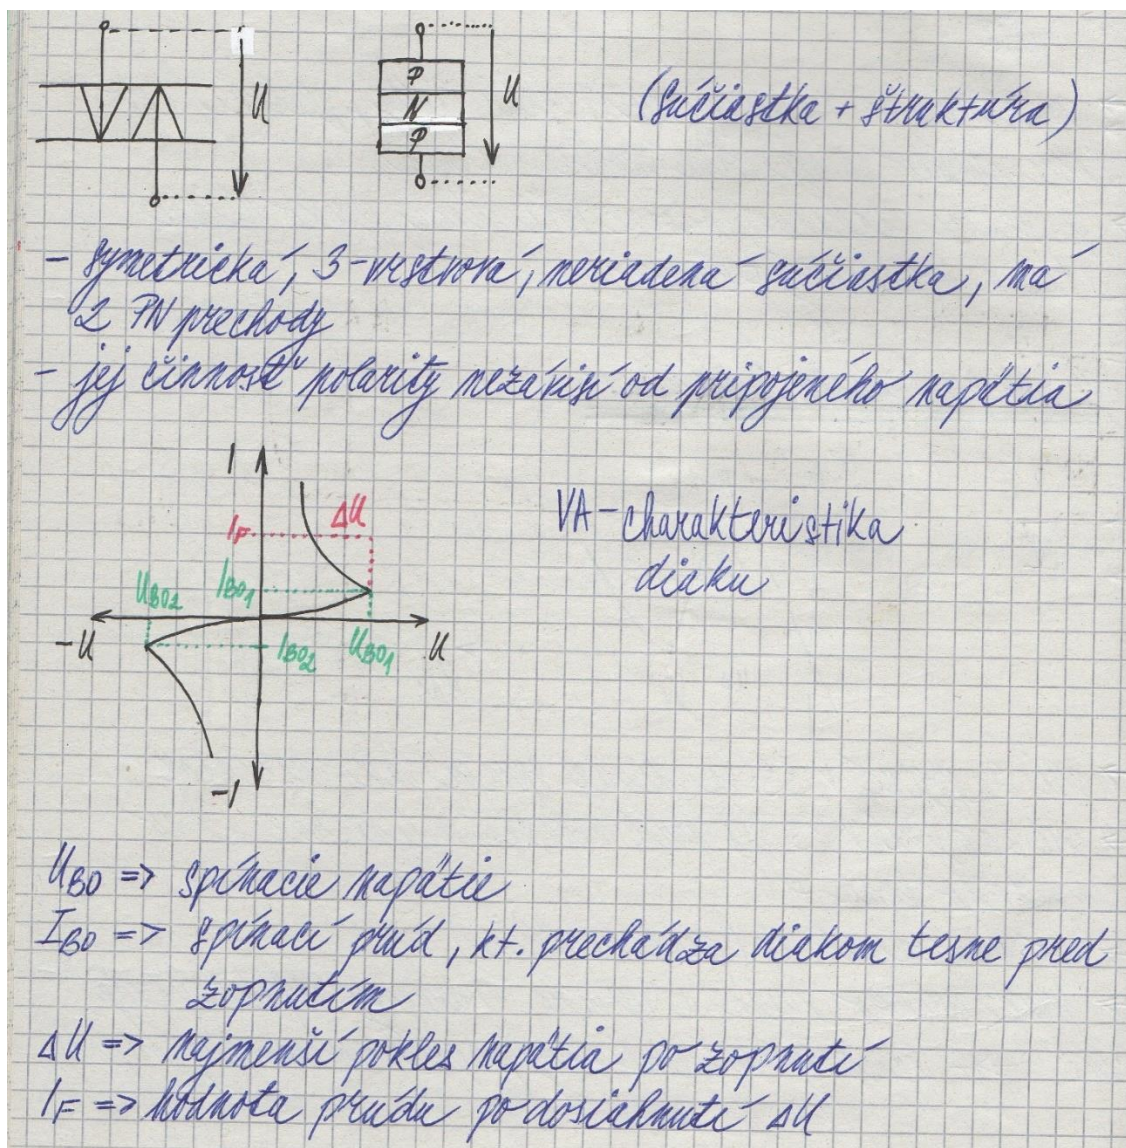 U
P
N
P
U
(súčiastka + štruktúra)
- symetrická, 3-vrstvová, neriadená súčiastka, má
2 PN prechody
- jej činnosť polarity nezávisí od pripojeného napätia
I
ΔU
IF
VA-charakteristika
diaku
UBO2
IBO1
-U
IBO2
UBO1
U
-I
UBO => spínacie napätie
IBO => spínací prúd, kt. prechádza diakom tesne pred
zopnutím
ΔU => najmenší pokles napätia po zopnutí
IF => hodnota prúdu po dosiahnutí ΔU